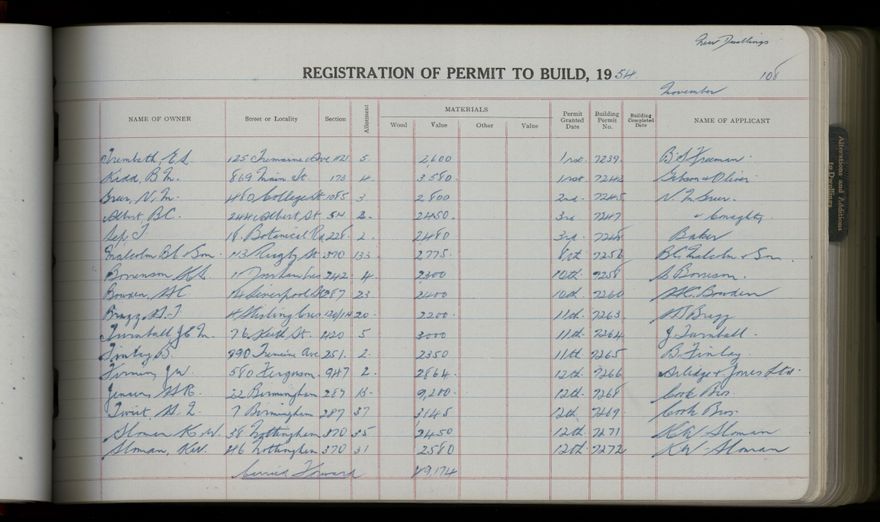 New Dwellings
REGISTRATION OF PERMIT TO BUILD, 1954
108
November
NAME OF OWNER Street or Locality Section Allotment MATERIALS Permit Granted Date Building Permit No. Building Completed Date NAME OF APPLICANT
Wood Value Other Value
Trembeth, E.L. 125 Tremaine Ave 1121 5 2,600 1st 7239
Kidd, B.M. 869 Main St. 173 4 3,580 1st 7242 Gibson & Oliver
Greer, N.M. 480 College St 1085 3 2,800 2nd 7245 N.M. Greer
Albert B.C. 244 Albert St 2 2450 3rd 7247
18 Botanical Rd 228 2 2480 3rd Baker
Malcolm B.C & Son 113 Rugby St 370 133 2,775 8th 7256 B.C. Malcolm & Son
242 4 2300 10th 7258
Bowden, H.C. Liverpool St 287 23 2400 10th 7260 H.C. Bowden
Bragg, H.J. Stirling Cres 20 2200 11th 7263 H.J. Bragg
Turnbull, J.E.M. 76 Keith St. 420 5 3000 11th 7264 J Turnbull
Finlay, B. 290 Tremaine Ave 251 2 2350 11th 7265 B. Finlay
580 Ferguson 947 2 2864 12th 7266 & Jones Ltd
Jensen, H.R. 22 Birmingham 287 9,200 12th 7268 Cook Bros
Twist, H.L. 7 Birmingham 287 37 3145 12th 7269 Cook Bros
Sloman K.W. 38 Nottingham 370 35 2450 12th 7271 K.W. Sloman
Sloman, K.W. 46 Nottingham 370 31 2580 12th 7272 K.W. Sloman
Carried Forward 49,174
Alterations and Additions to Dwellings